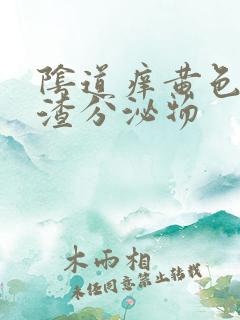 陰道痒黄色
渣分泌物
木雨相
未经同意禁止转载